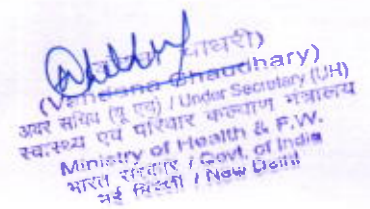 चौधरी)
Chaudhary)
अवर सचिव (यू एच) / Under Secretary (UH)
स्वास्थ्य एवं परिवार कल्याण मंत्रालय
Ministry of Health & F.W.
भारत सरकार / Govt. of India
नई दिल्ली / New Delhi